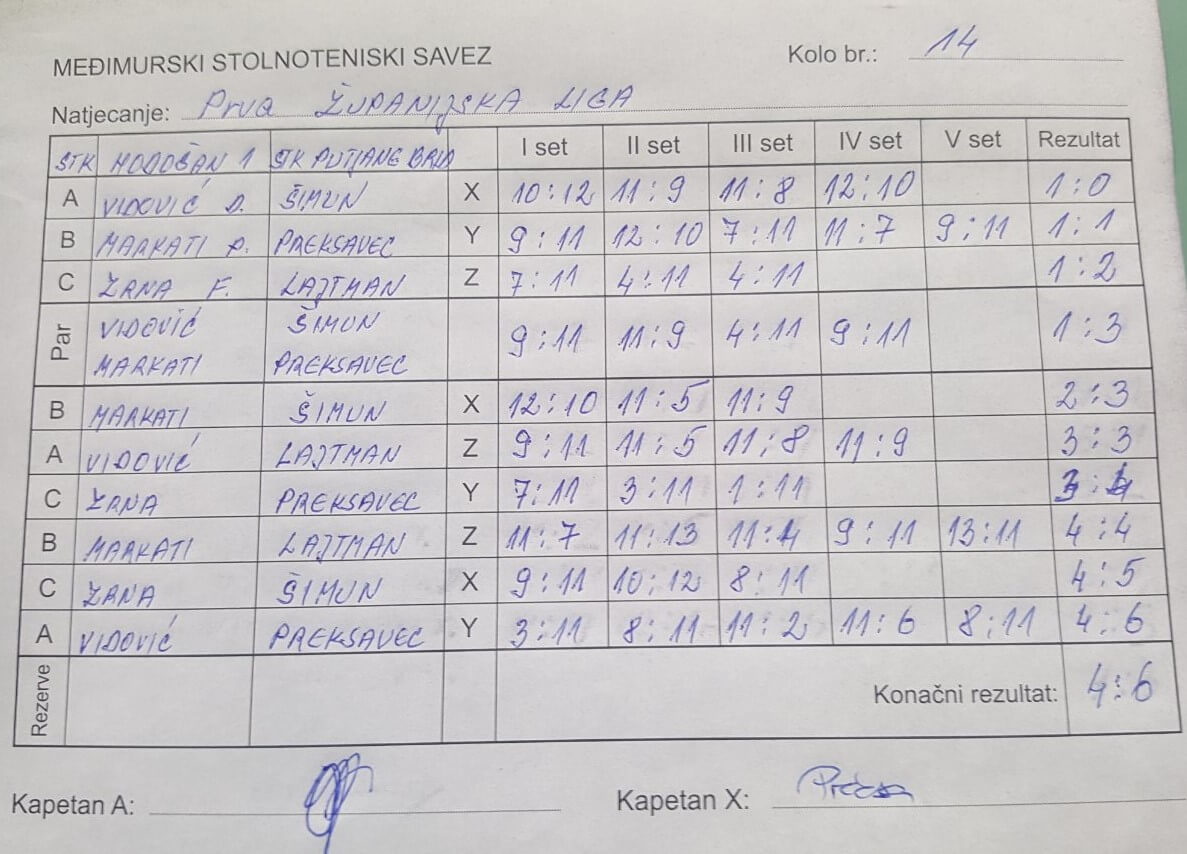 MEĐIMURSKI STOLNOTENISKI SAVEZ Kolo br.: 14
Natjecanje: Prva ŽUPANIJSKA LIGA
STK HODOŠAN 1 STK PUTJANE BRLD I set II set III set IV set V set Rezultat
A VIDOVIĆ D. ŠIMUN X 10:12 11:9 11:8 12:10 1:0
B MARKATI P. PREKSAVEC Y 9:11 12:10 7:11 11:7 9:11 1:1
C ŽRNA F. LAJTMAN Z 7:11 4:11 4:11 1:2
Par VIDOVIĆ ŠIMUN 9:11 11:9 4:11 9:11 1:3
MARKATI PREKSAVEC
B MARKATI ŠIMUN X 12:10 11:5 11:9 2:3
A VIDOVIĆ LAJTMAN Z 9:11 11:5 11:8 11:9 3:3
C ŽRNA PREKSAVEC Y 7:11 3:11 1:11 3:4
B MARKATI LAJTMAN Z 11:7 11:13 11:4 9:11 13:11 4:4
C ŽRNA ŠIMUN X 9:11 10:12 8:11 4:5
A VIDOVIĆ PREKSAVEC Y 3:11 8:11 11:2 11:6 8:11 4:6
Rezerve Konačni rezultat: 4:6
Kapetan A: Kapetan X: